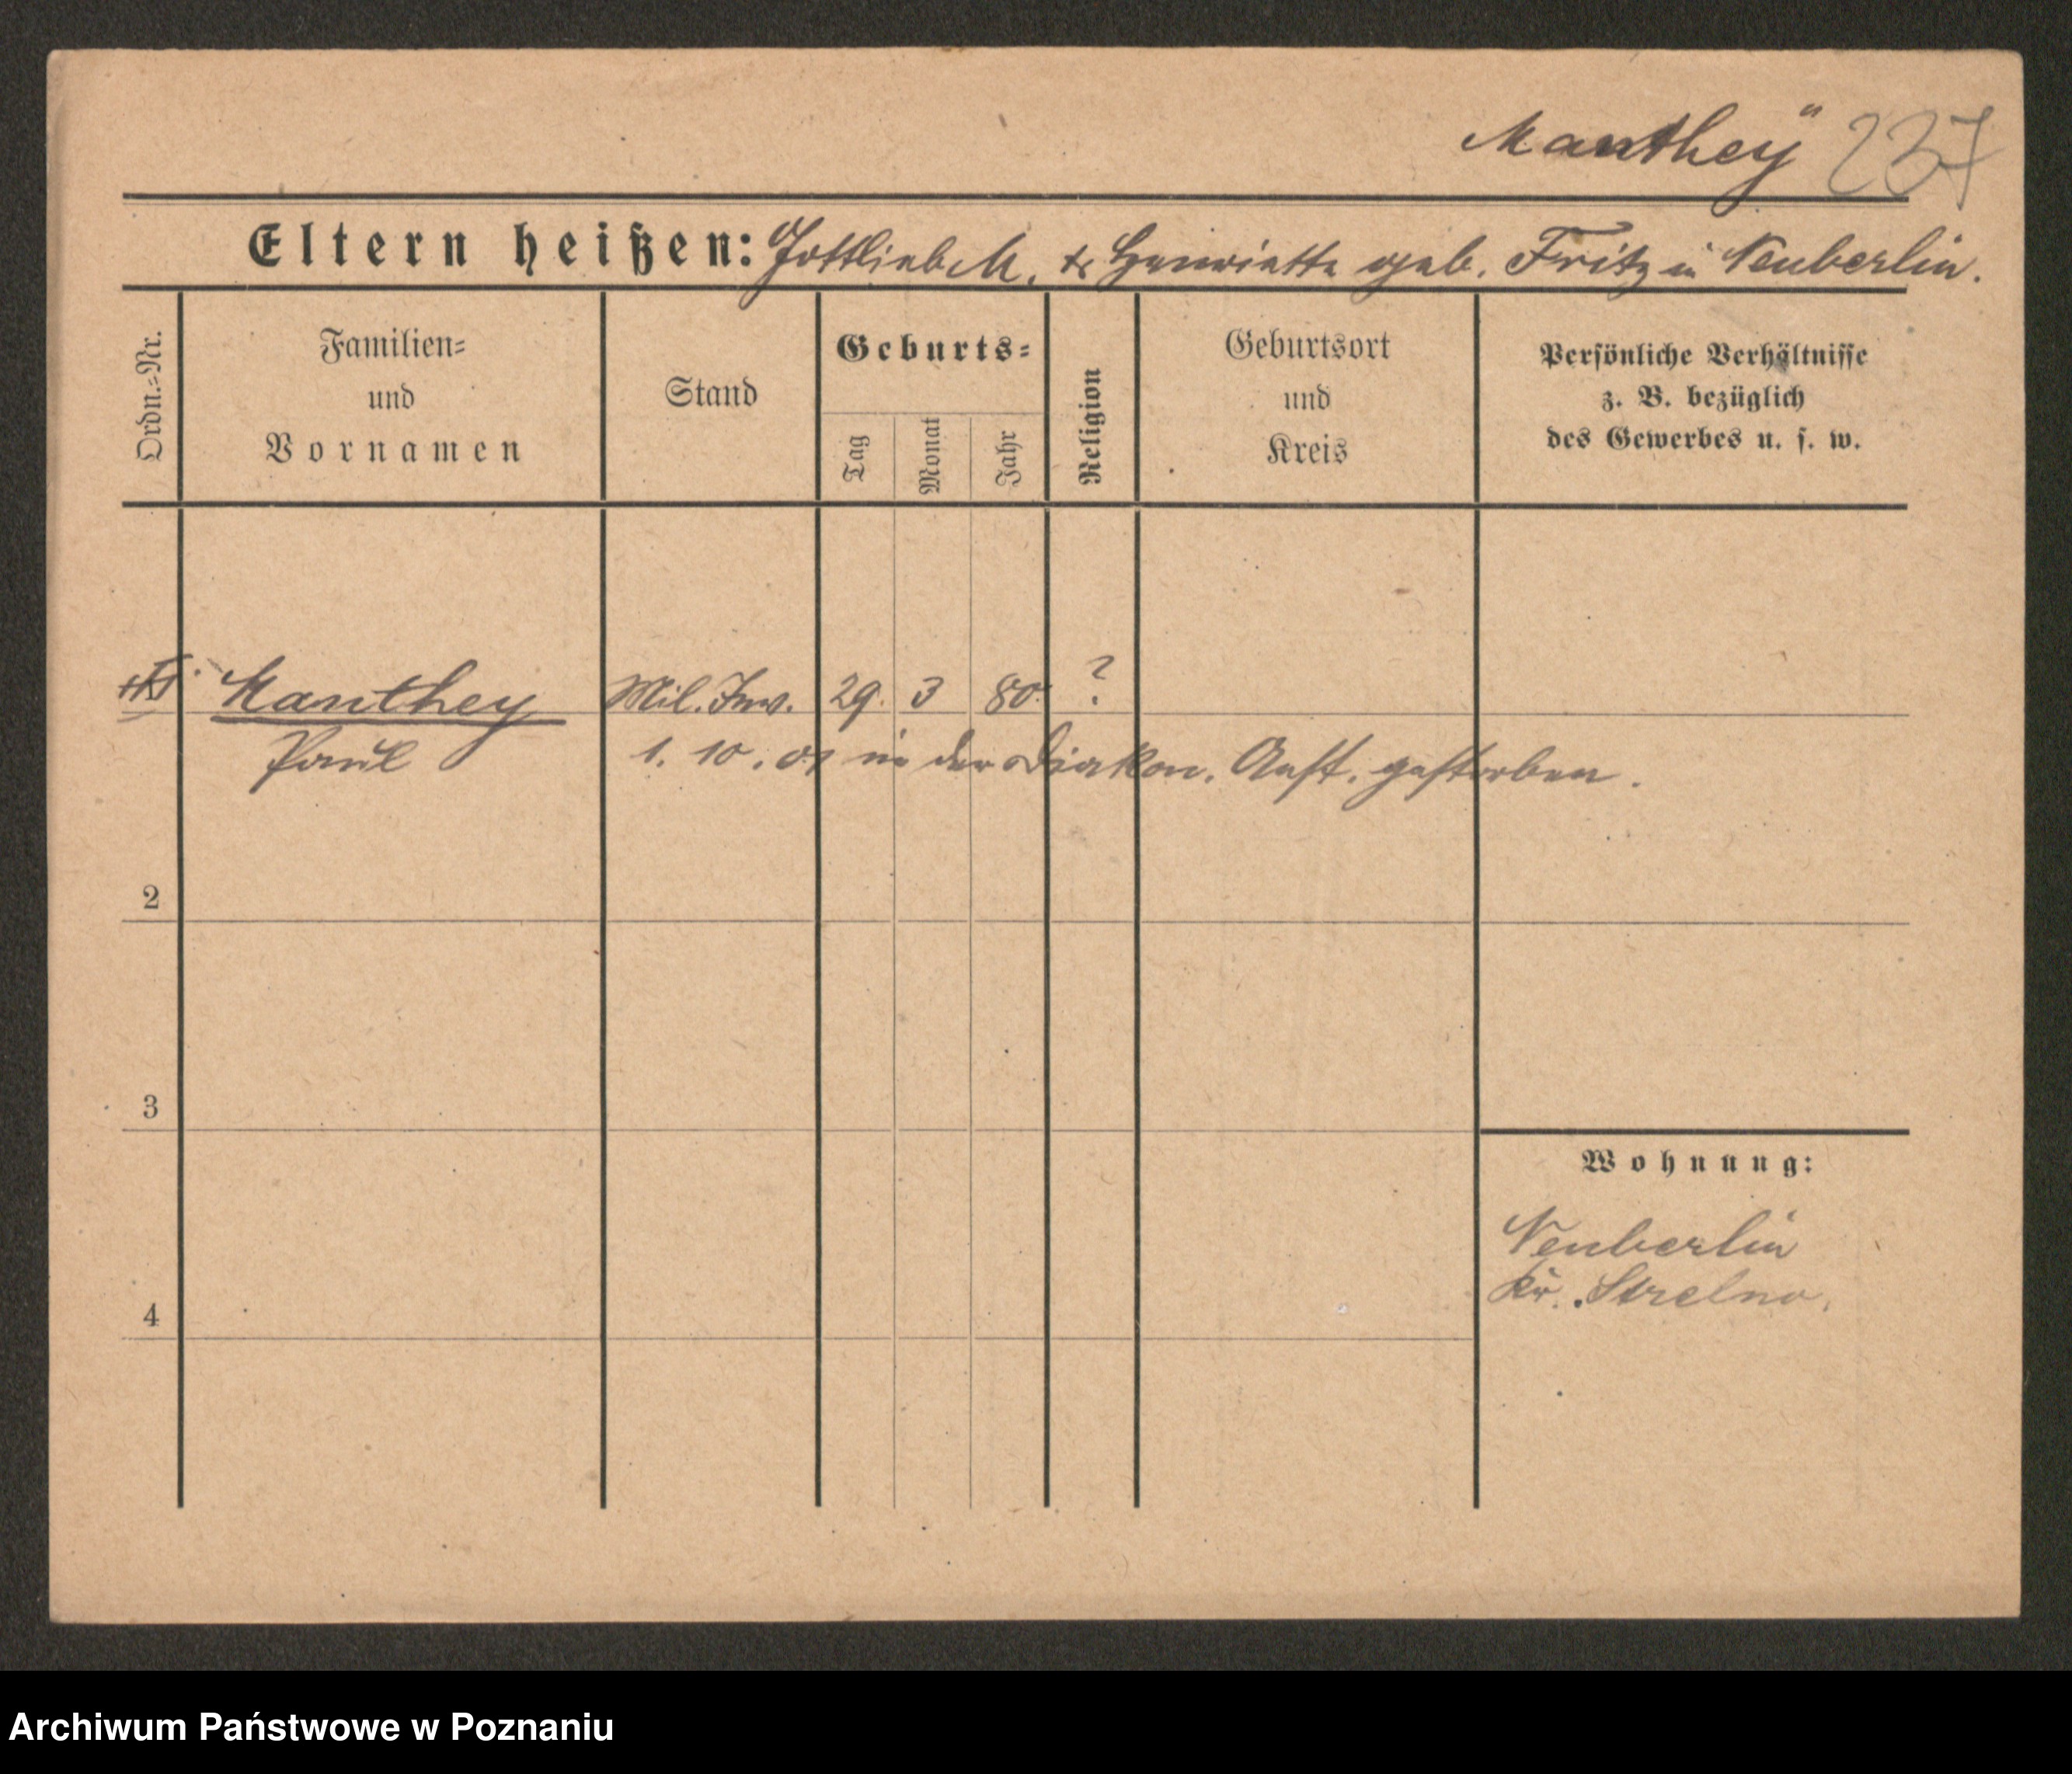 Manthey 237
Eltern heißen: Gottlieb M. & Henriette geb. Fritz in Neuberlin.
Ordn.-Nr.
Familien-
und
Vornamen
Stand
Geburts-
Tag
Monat
Jahr
Religion
Geburtsort
und
Kreis
Persönliche Verhältnisse
z. B. bezüglich
des Gewerbes u. s. w.
Manthey Mil. Inv. 29. 3 80. ?
Paul 1. 10. 01 in der Diakon. Anst. gestorben.
2
3
Wohnung:
Neuberlin
Kr. Strelno.
4
Archiwum Państwowe w Poznaniu